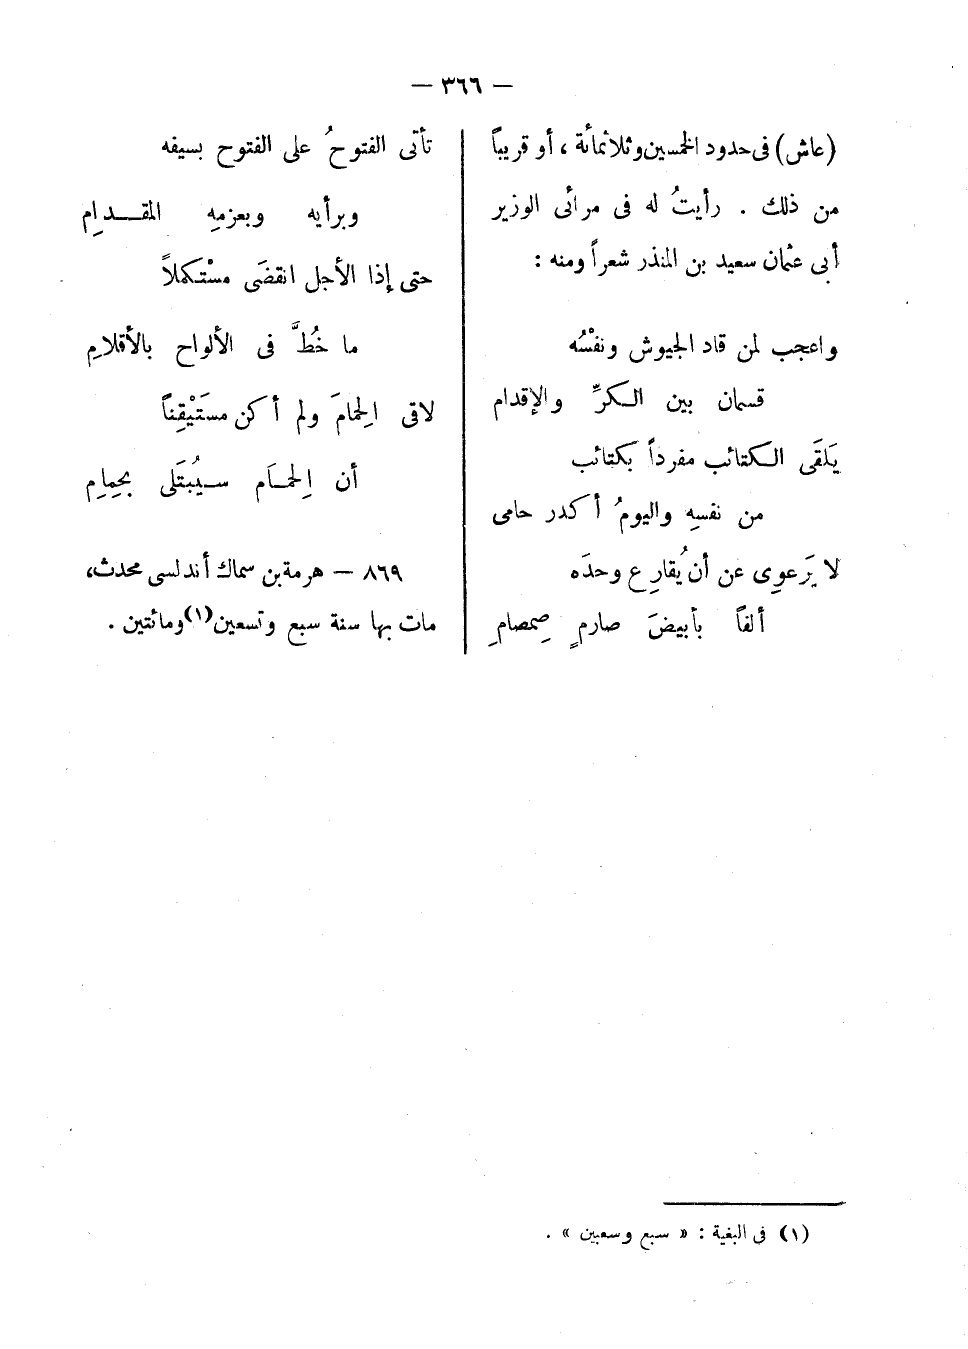 — ٣٦٦ —
(عاش) فى حدود الخمسين وثلاثمائة ، أو قريباً
من ذلك . رأيتُ له فى مرائى الوزير
أبى عثمان سعيد بن المنذر شعراً ومنه :
واعجب لمن قاد الجيوش ونفْسُه
قسمان بين الكرِّ والإقدام
يَلقَى الكتائب مفرداً بكتائب
من نفسِهِ واليومُ أكدر حامى
لا يَرعوِى عن أن يُقارِع وحدَه
ألفاً بأبيضَ صارمٍ صِمصامِ
تأتى الفتوحُ على الفتوح بسيفه
وبرأيه وبعزمهِ المقدامِ
حتى إذا الأجل انقضَى مسْتكملاً
ما خُطَّ فى الألواح بالأقلامِ
لاقى الِحمامَ ولم أكن مستَيْقِناً
أن الِحمام سيُبتَلى بحِمامِ
٨٦٩ — هرمة بن سماك أندلسى محدث،
مات بها سنة سبع وتسعين(١) ومائتين .
(١) فى البغية : « سبع وسعبين » .